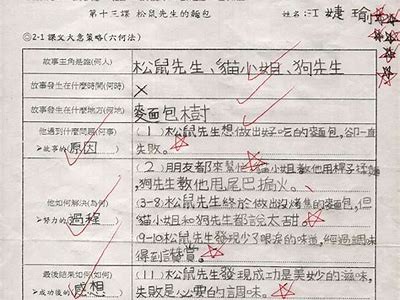 第十三課 松鼠先生的麵包
姓名:江婕瑜
◎2-1 課文大意策略(六何法)
故事主角是誰(何人) 松鼠先生、貓小姐、狗先生
故事發生在什麼時間(何時) ×
故事發生在什麼地方(何地) 麥面包木封
他遇到什麼問題(何事) (1)松鼠先生想做出好吃的麥面包,卻一直
→故事的原因 失敗。
(2)朋友都來幫忙,貓小姐教他用桿子揉麵,
狗先生教他用尾巴搧火。
他如何解決(為何) (3-8)松鼠先生終於做出沒烤焦的麥面包,但
→努力的過程 貓小姐和狗先生都說太甜。
(9-10)松鼠先生發現少了眼淚的味道,經過調味
得到讚賞。
最後結果如何(如何) (11)松鼠先生發現成功是美妙的滋味,
→成功後的感想 失敗是必要的調味。